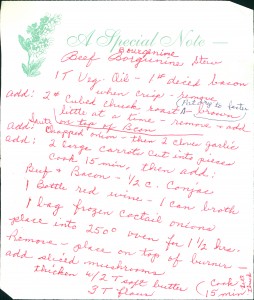 A Special Note
Bourguinine
Beef Borguinine Stew
1 T Veg. Oil - 1# diced bacon
when crisp - remove
add: 2# Cubed chuck roast - brown
little at a time - remove & add
Salt on top of Bacon
add: Chopped onion - then 2 clove garlic
add: 2 Large carrots cut into pieces
Cook 15 min, then add:
Beef & Bacon - 1/2 c. Conjac
1 Bottle red wine - 1 can broth
1 bag frozen coctail onions
place into 250° oven for 1 1/2 hrs.
Remove - place on top of burner -
add sliced mushrooms
thicken w/ 2 T soft butter
3 T flour
Cook
15 min